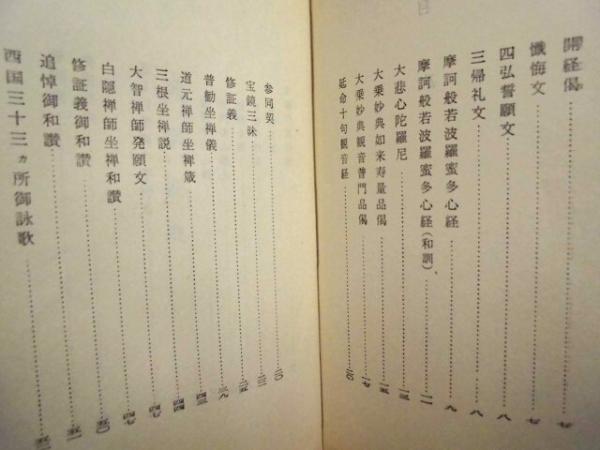 開経偈 七
懺悔文 七
四弘誓願文 八
三帰礼文 八
摩訶般若波羅蜜多心経 九
摩訶般若波羅蜜多心経(和訓) 一一
大悲心陀羅尼 一三
大乗妙典如来寿量品偈 一五
大乗妙典観音普門品偈 一七
延命十句観音経 二〇
参同契 二〇
宝鏡三昧 二二
修証義 二五
普勧坐禅儀 三九
道元禅師坐禅箴 四三
三根坐禅説 四四
大智禅師発願文 四七
白隠禅師坐禅和讃 四七
修証義御和讃 五〇
追悼御和讃 五一
西国三十三ヵ所御詠歌 五二